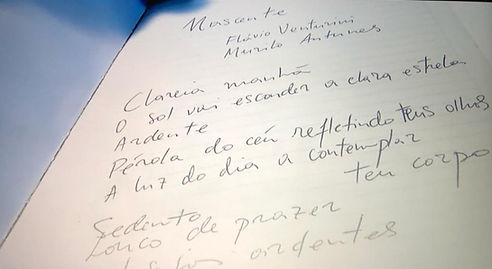 Nascente
Flávio Venturini
Murilo Antunes
Clareia manhã
O sol vai esconder a clara estrela
Ardente
Pérola do céu refletindo teus olhos
A luz do dia a contemplar
teu corpo
Sedento
Louco de prazer
ardentes